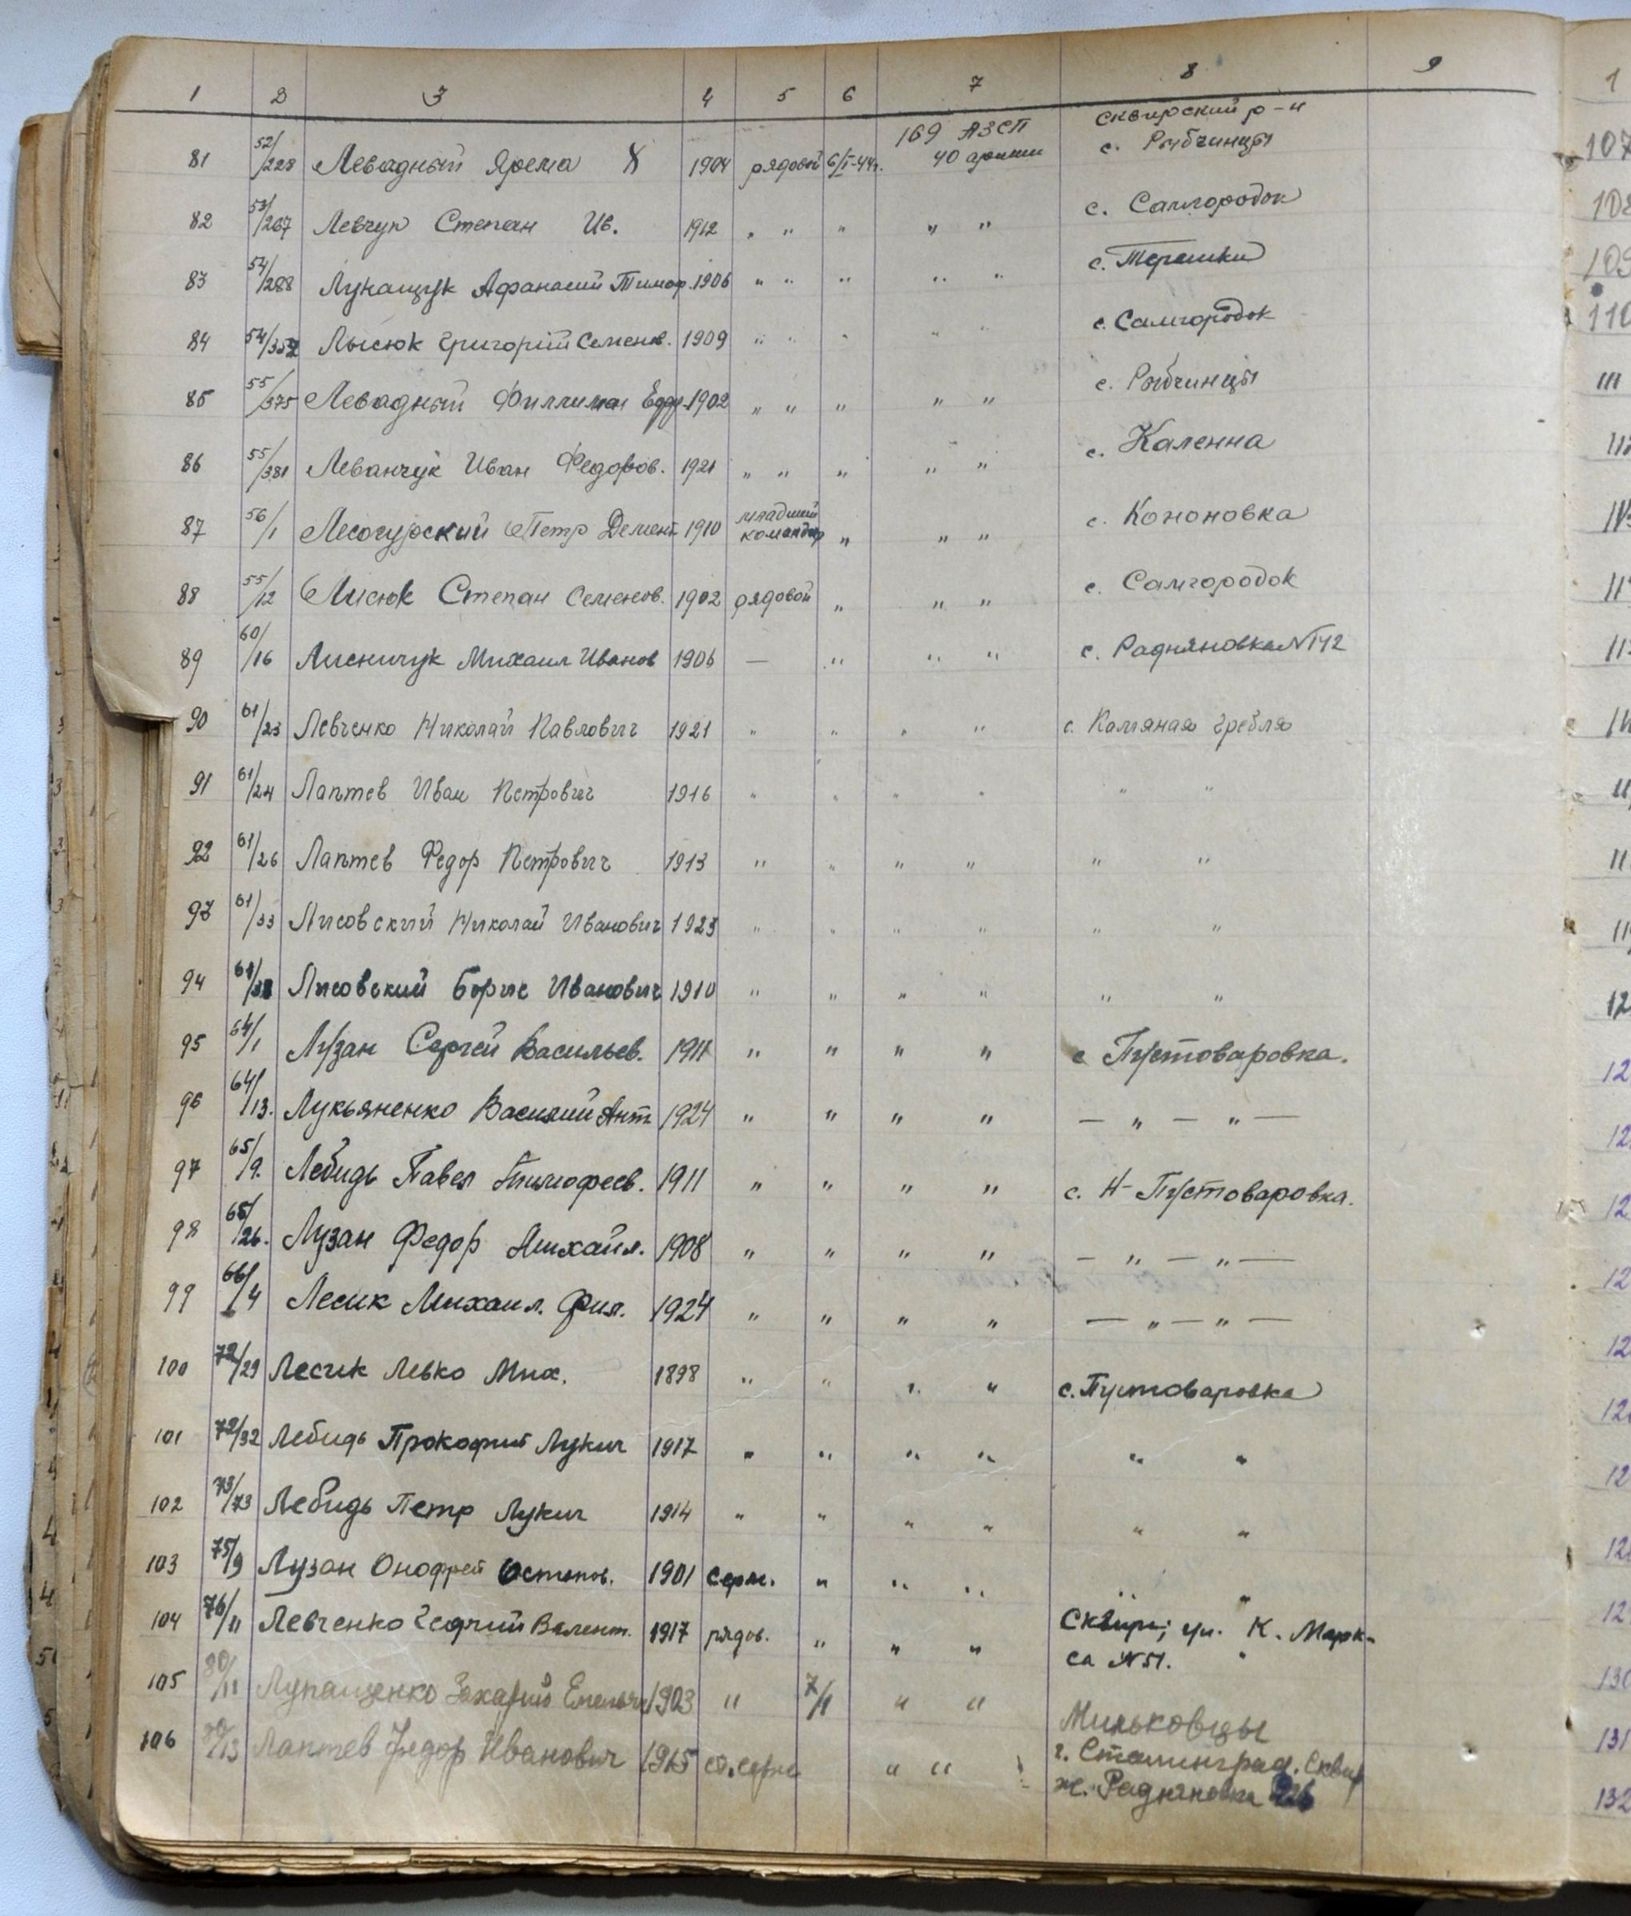 1 2 3 4 5 6 7 8 9
81 52/228 Левадный Ярема Х 1904 рядовой 6/I-44г. 169 АЗСП 40 армии Сквирский р-н с. Рыбчинцы
82 53/267 Левчук Степан Ив. 1912 " " " " " с. Самгородок
83 54/288 Лукащук Афанасий Тимоф. 1906 " " " " " с. Терешки
84 54/352 Лысюк Григорий Семенов. 1909 " " " " " с. Самгородок
85 55/375 Левадный Филлимон 1902 " " " " " с. Рыбчинцы
86 55/381 Леванчук Иван Федоров. 1921 " " " " " с. Каленна
87 56/1 Петр Демент 1910 младший командир " " " с. Кононовка
88 55/12 Лисюк Степан Семенов. 1902 рядовой " " " с. Самгородок
89 60/16 Лисничук Михаил Иванов 1906 — " " " с. Радняновка N142
90 61/23 Левченко Николай Павлович 1921 " " " " с. Каляная Гребля
91 61/24 Лаптев Иван Петрович 1916 " " " " " "
92 61/26 Лаптев Федор Петрович 1913 " " " " " "
93 61/33 Лисовский Николай Иванович 1923 " " " " " "
94 61/38 Лисовский Борис Иванович 1910 " " " " " "
95 64/1 Лузан Сергей Васильев. 1911 " " " " с Пустоваровка.
96 64/13. Лукьяненко Василий Ант. 1924 " " " " — " — " —
97 65/9. Лебидь Павел Тимофеев. 1911 " " " " с. Н-Пустоваровка.
98 65/26. Лузан Федор Михайл. 1908 " " " " — " — " —
99 66/4 Лесик Михаил. Фил. 1924 " " " " — " — " —
100 72/29 Лесик Левко Мих. 1898 " " " " с. Пустоваровка
101 72/32 Лебидь Прокофий Лукич 1917 " " " " " "
102 73/73 Лебидь Петр Лукич 1914 " " " " " "
103 75/9 Лузан Онофрей Остапов. 1901 серж. " " " "
104 76/11 Левченко Валент. 1917 рядов. " " " Сквира, ул. К. Марк-
са N51.
105 80/11 Лупащенко Захарий Емельян 1903 " 7/I " " Мильковцы
106 Лаптев Федор Иванович 1915 ст. серж " " г. Сталинград. Сквир
ж. Радняновка
1
107
108
109
110
111